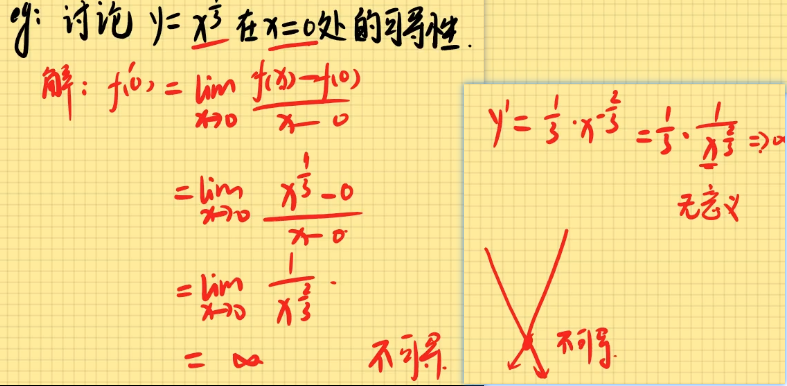 eg: 讨论 y = x^{1/3} 在 x=0 处的可导性.
解: f'(0) = lim_{x→0} \frac{f(x)-f(0)}{x-0}
= lim_{x→0} \frac{x^{1/3}-0}{x-0}
= lim_{x→0} \frac{1}{x^{2/3}}.
= ∞ 不可导.
y' = \frac{1}{3}·x^{-2/3} = \frac{1}{3}·\frac{1}{x^{2/3}} => ∞
无意义
不可导.